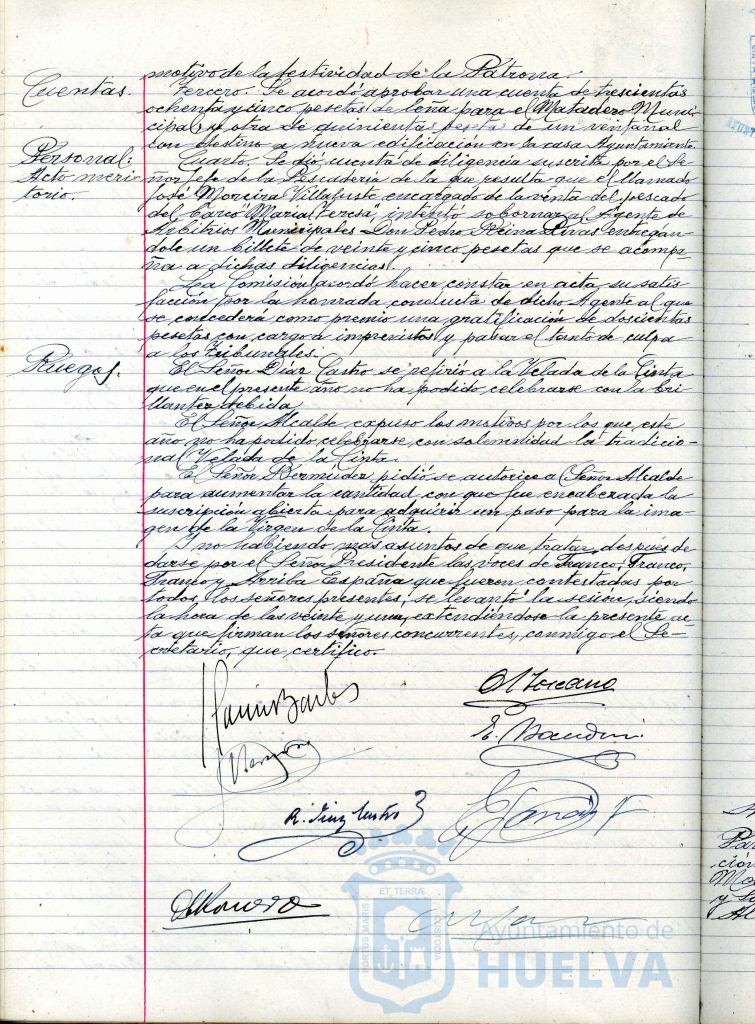 motivo de la festividad de la Patrona.
Cuentas.
Tercero. Se acordó aprobar una cuenta de trescientas
ochenta y cinco pesetas de leña para el Matadero Muni-
cipal y otra de quinientas pesetas de un ventanal
con destino a nueva edificación en la casa Ayuntamiento.
Personal:
Acto meri
torio.
Cuarto. Se dió cuenta de diligencia suscrita por el Se-
ñor Jefe de la Pescadería de la que resulta que el llamado
José Moreira Villafuste, encargado de la venta del pescado
del barco "María Teresa", intentó sobornar al Agente de
Arbitrios Municipales Don Pedro Reina Rivas entregán-
dole un billete de veinte y cinco pesetas que se acompa-
ña a dichas diligencias.
La Comisión acordó hacer constar en acta, su satis-
facción por la honrada conducta de dicho Agente al que
se concederá como premio una gratificación de doscientas
pesetas con cargo a imprevistos y pasar el tanto de culpa
a los Tribunales.
Ruegos.
El Señor Díaz Castro se refirió a la Velada de la Cinta
que en el presente año no ha podido celebrarse con la bri-
llantez debida.
El Señor Alcalde expuso los motivos por los que este
año no ha podido celebrarse con solemnidad la tradicio-
nal Velada de la Cinta.
El Señor Bermúdez pidió se autorice al Señor Alcalde
para aumentar la cantidad con que fue encabezada la
suscripción abierta para adquirir un paso para la ima-
gen de la Virgen de la Cinta.
Y no habiendo más asuntos de que tratar, después de
darse por el Señor Presidente las voces de Franco, Franco,
Franco y Arriba España que fueron contestadas por
todos los señores presentes, se levantó la sesión, siendo
la hora de las veinte y una, extendiéndose la presente ac
ta que firman los señores concurrentes, conmigo el Se-
cretario, que certifico.
R. Díaz Castro
ET TERRÆ
PORTUS MARIS
CUSTODIA
Ayuntamiento de
HUELVA